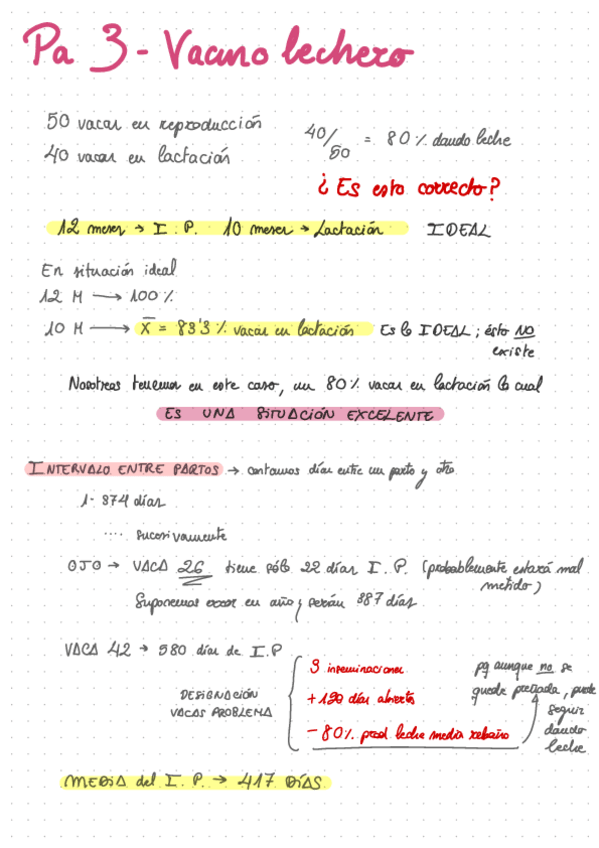 Pa 3 - Vacuno lechero
50 vacas en reproducción
40 vacas en lactación
40/50 = 80% dando leche
¿Es esto correcto?
12 meses → I.P. 10 meses → Lactación IDEAL
En situación ideal
12 M → 100%
10 M → X̄ = 83'3% vacas en lactación Es lo IDEAL; ésto NO
existe
Nosotros tenemos en este caso, un 80% vacas en lactación lo cual
ES UNA SITUACIÓN EXCELENTE
INTERVALO ENTRE PARTOS → contamos días entre un parto y otro.
1- 374 días
.... sucesivamente
OJO → VACA 26 tiene sólo 22 días I.P. (probablemente estará mal
metido)
Suponemos en año y serán 387 días
VACA 42 → 580 días de I.P
DESIGNACIÓN
VACAS PROBLEMA
3 inseminaciones
+120 días abiertos
- 80% prod leche media rebaño
pq aunque no se
quede preñada, puede
seguir
dando
leche
MEDIA del I.P. → 417 DÍAS